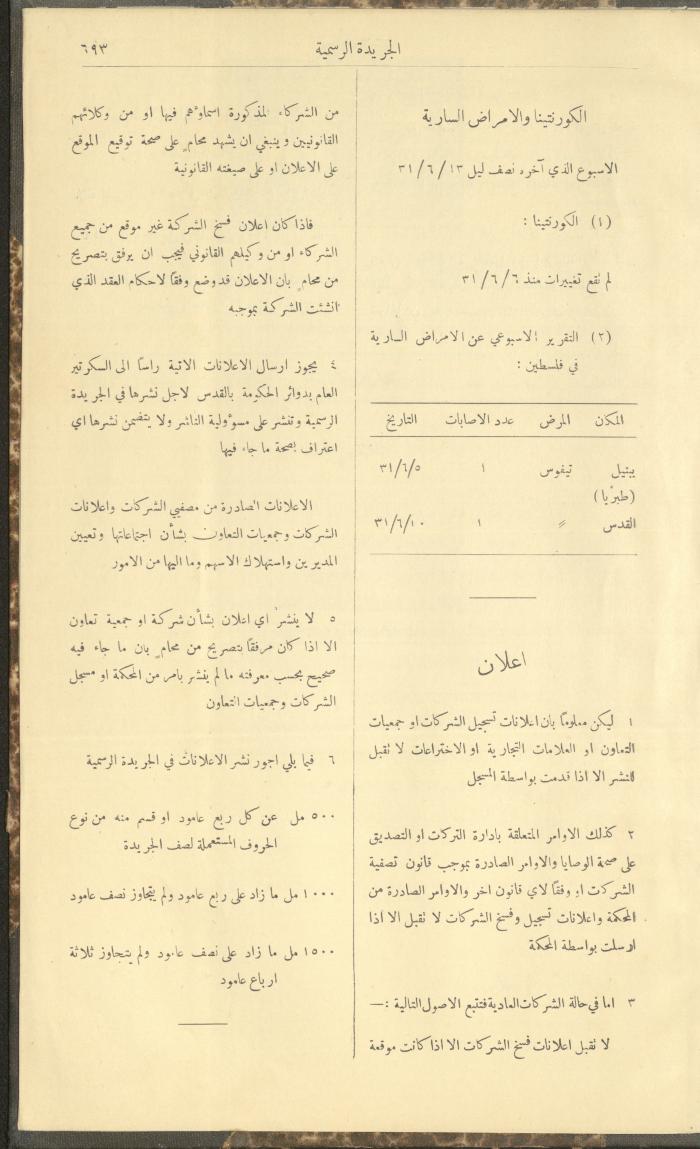 الجريدة الرسمية
٦٩٣
الكورنتينا والامراض السارية
الاسبوع الذي آخره نصف ليل ١٣ / ٦ / ٣١
(١) الكورنتينا :
لم تقع تغييرات منذ ٦ / ٦ / ٣١
(٢) التقرير الاسبوعي عن الامراض السارية
في فلسطين :
المكان المرض عدد الاصابات التاريخ
يبنيل تيفوس ١ ٣١/٦/٥
(طبريا)
القدس ״ ١ ٣١/٦/١٠
اعلان
١ ليكن معلومًا بان اعلانات تسجيل الشركات او جمعيات
التعاون او العلامات التجارية او الاختراعات لا تقبل
للنشر الا اذا قدمت بواسطة المسجل
٢ كذلك الاوامر المتعلقة بادارة التركات او التصديق
على صحة الوصايا والاوامر الصادرة بموجب قانون تصفية
الشركات او وفقًا لاي قانون اخر والاوامر الصادرة من
المحكمة واعلانات تسجيل وفسخ الشركات لا تقبل الا اذا
ارسلت بواسطة المحكمة
٣ اما في حالة الشركات العادية فتتبع الاصول التالية :—
لا تقبل اعلانات فسخ الشركات الا اذا كانت موقعة
من الشركاء المذكورة اسماؤهم فيها او من وكلائهم
القانونيين وينبغي ان يشهد محامٍ على صحة توقيع الموقع
على الاعلان او على صيغته القانونية
فاذا كان اعلان فسخ الشركة غير موقع من جميع
الشركاء او من وكيلهم القانوني فيجب ان يرفق بتصريح
من محامٍ بان الاعلان قد وضع وفقًا لاحكام العقد الذي
انشئت الشركة بموجبه
٤ يجوز ارسال الاعلانات الاتية راسًا الى السكرتير
العام بدوائر الحكومة بالقدس لاجل نشرها في الجريدة
الرسمية وتنشر على مسوؤلية الناشر ولا يتضمن نشرها اي
اعتراف بصحة ما جاء فيها
الاعلانات الصادرة من مصفيي الشركات واعلانات
الشركات وجمعيات التعاون بشأن اجتماعاتها وتعيين
المديرين واستهلاك الاسهم وما اليها من الامور
٥ لا ينشر اي اعلان بشأن شركة او جمعية تعاون
الا اذا كان مرفقًا بتصريح من محامٍ بان ما جاء فيه
صحيح بحسب معرفته ما لم ينشر بامر من المحكمة او مسجل
الشركات وجمعيات التعاون
٦ فيما يلي اجور نشر الاعلانات في الجريدة الرسمية
٥٠٠ مل عن كل ربع عامود او قسم منه من نوع
الحروف المستعملة لصف الجريدة
١٠٠٠ مل ما زاد على ربع عامود ولم يتجاوز نصف عامود
١٥٠٠ مل ما زاد على نصف عامود ولم يتجاوز ثلاثة
ارباع عامود